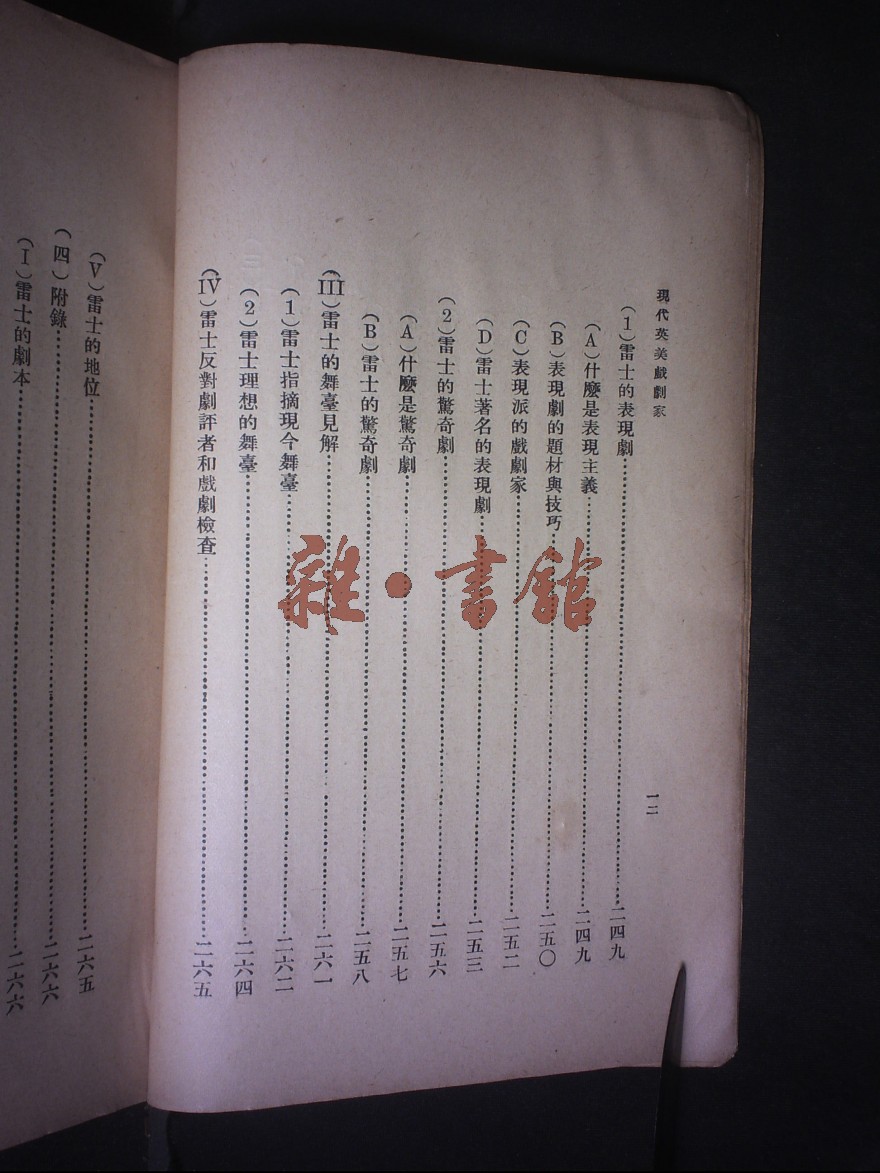 現代英美戲劇家
一二
(1)雷士的表現劇……二四九
(A)什麼是表現主義……二四九
(B)表現劇的題材與技巧……二五〇
(C)表現派的戲劇家……二五二
(D)雷士著名的表現劇……二五三
(2)雷士的驚奇劇……二五六
(A)什麼是驚奇劇……二五七
(B)雷士的驚奇劇……二五八
(III)雷士的舞臺見解……二六一
(1)雷士指摘現今舞臺……二六二
(2)雷士理想的舞臺……二六四
(IV)雷士反對劇評者和戲劇檢查……二六五
(V)雷士的地位……二六五
(四)附錄……二六六
(I)雷士的劇本……二六六
雜·書館